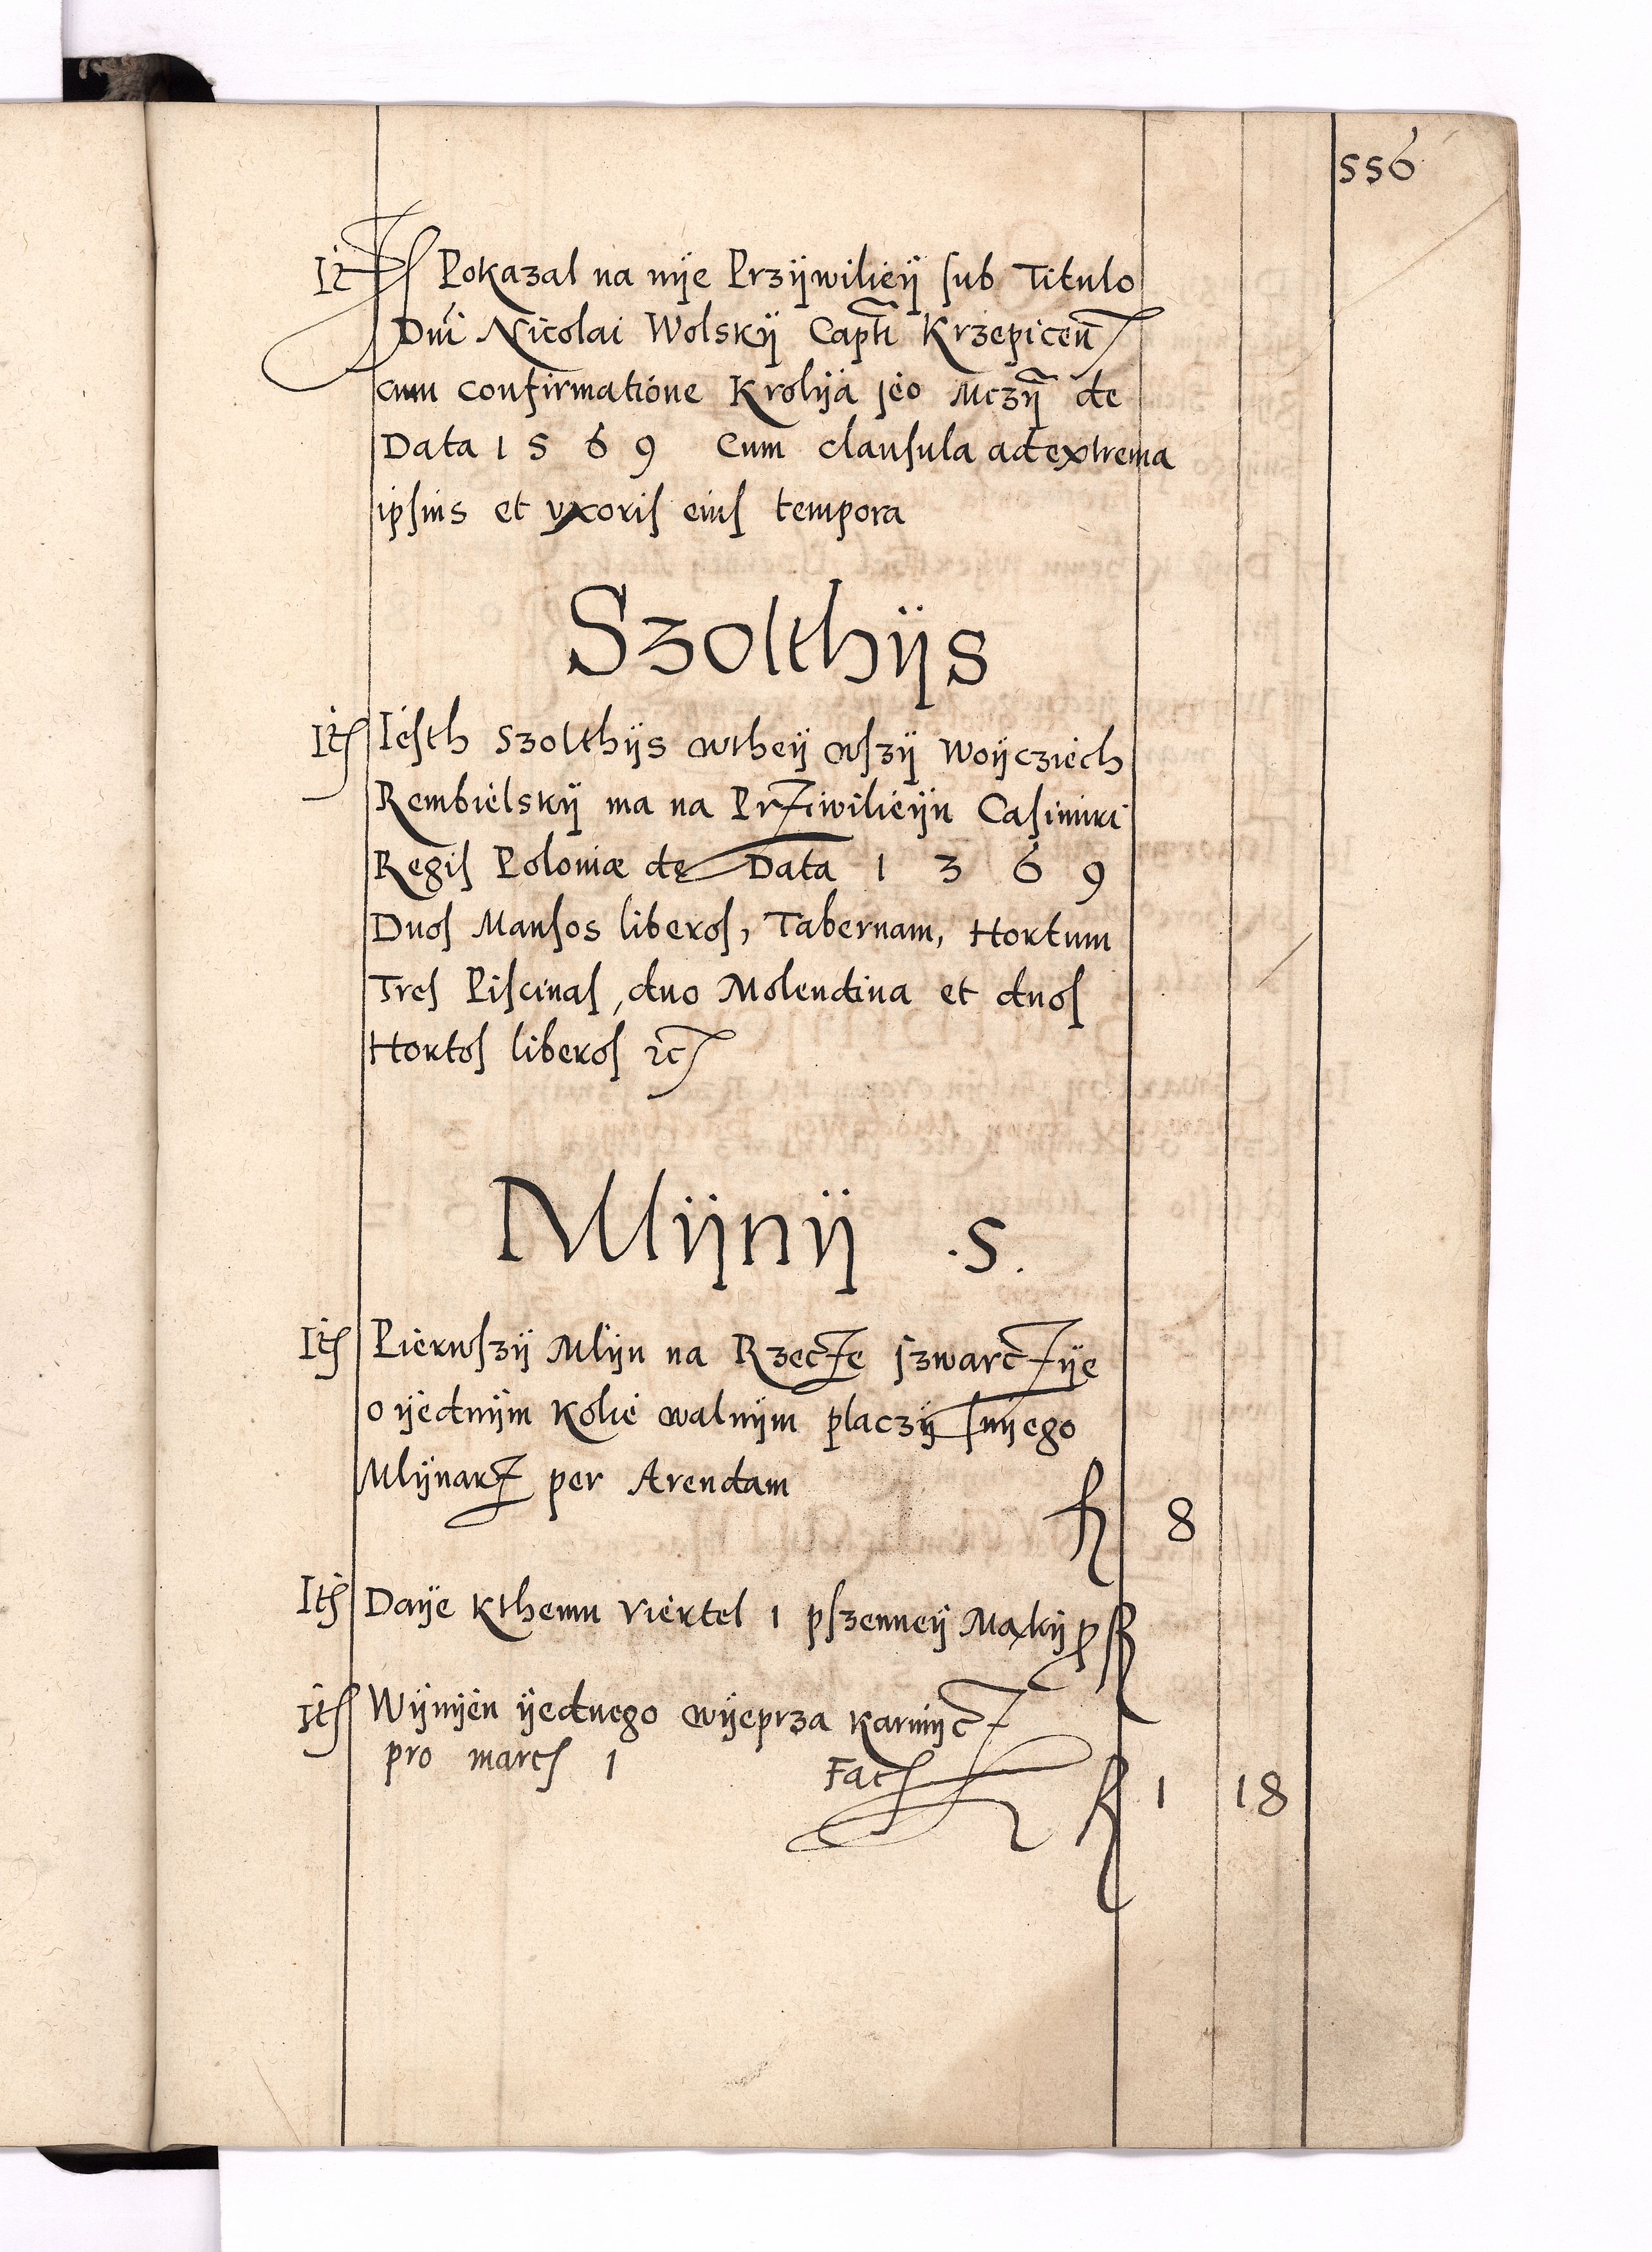 556
It Pokazal na nÿe Przÿwilieÿ sub Titulo
Dni Nicolai Wolskÿ Capti Krzepicen
cum confirmatione Krolÿa jeo Mczÿ de
Data 1 5 6 9 Cum clausula ad extrema
ipsius et vxoris eius tempora
Szolthÿs
It Iesth Szolthÿs wtheÿ wszÿ Woÿcziech
Rembielskÿ ma na Prziwilieÿn Casimiri
Regis Poloniæ de Data 1 3 6 9
Duos Mansos liberos, Tabernam, Hortum
Tres Piscinas, duo Molendina et duos
Hortos liberos etc
Mlÿnÿ .5.
It Pierwszÿ Mlÿn na Rzecze szwarczÿe
o ÿednÿm Kolie walnÿm placzÿ snÿego
Mlÿnarz per Arendam f 8
It Daÿe kthemu viertel 1 pszenneÿ Mąkÿ p f
It Wÿmÿen ÿednego wÿeprza karmÿcz
pro marc 1 Fac f 1 18